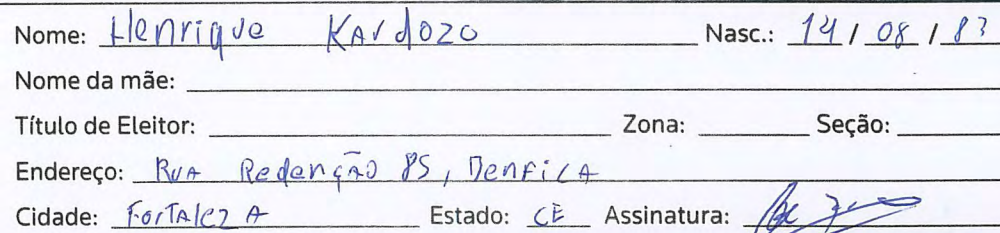 Nome: Henrique Kardozo Nasc.: 14 / 08 / 83
Nome da mãe:
Título de Eleitor: Zona: Seção:
Endereço: Rua Redenção 85, Benfica
Cidade: Fortaleza Estado: CE Assinatura: